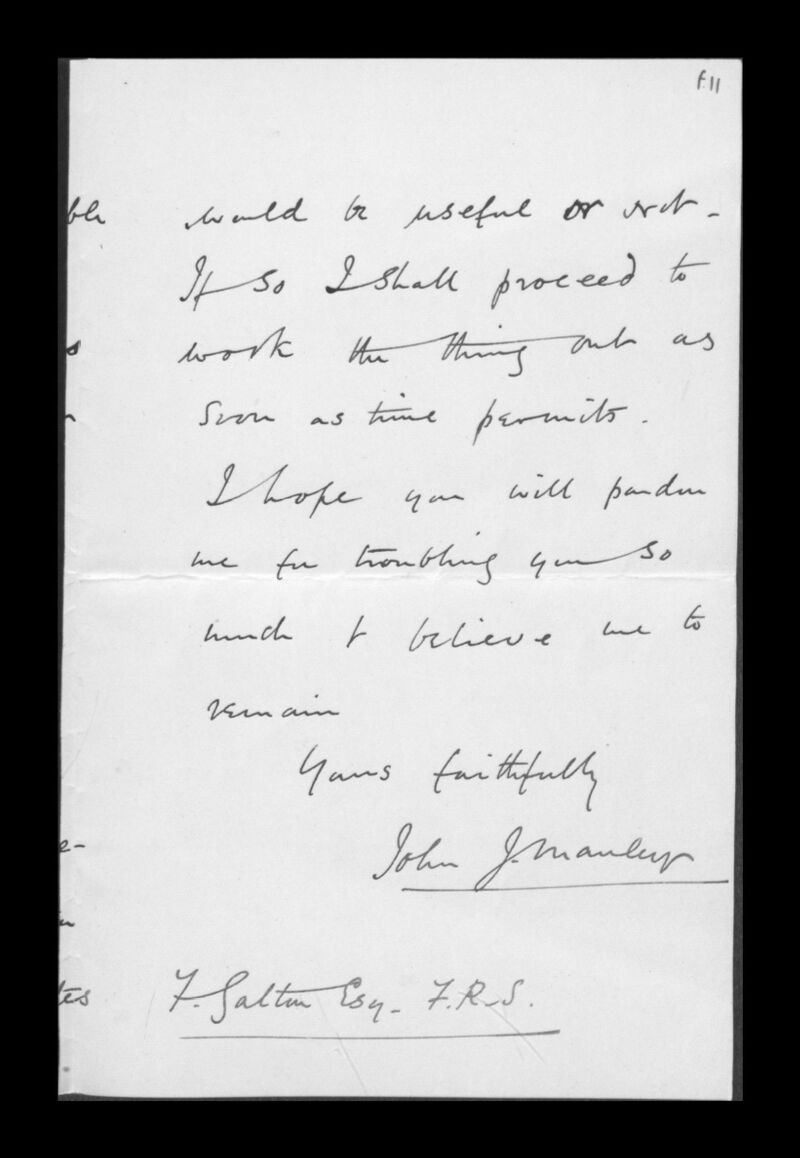 f11
would be useful or not -
If so I shall proceed to
work the thing out as
soon as time permits.
I hope you will pardon
me for troubling you so
much & believe me to
remain
Yours faithfully
John J. Manley
F. Galton Esq. F.R.S.